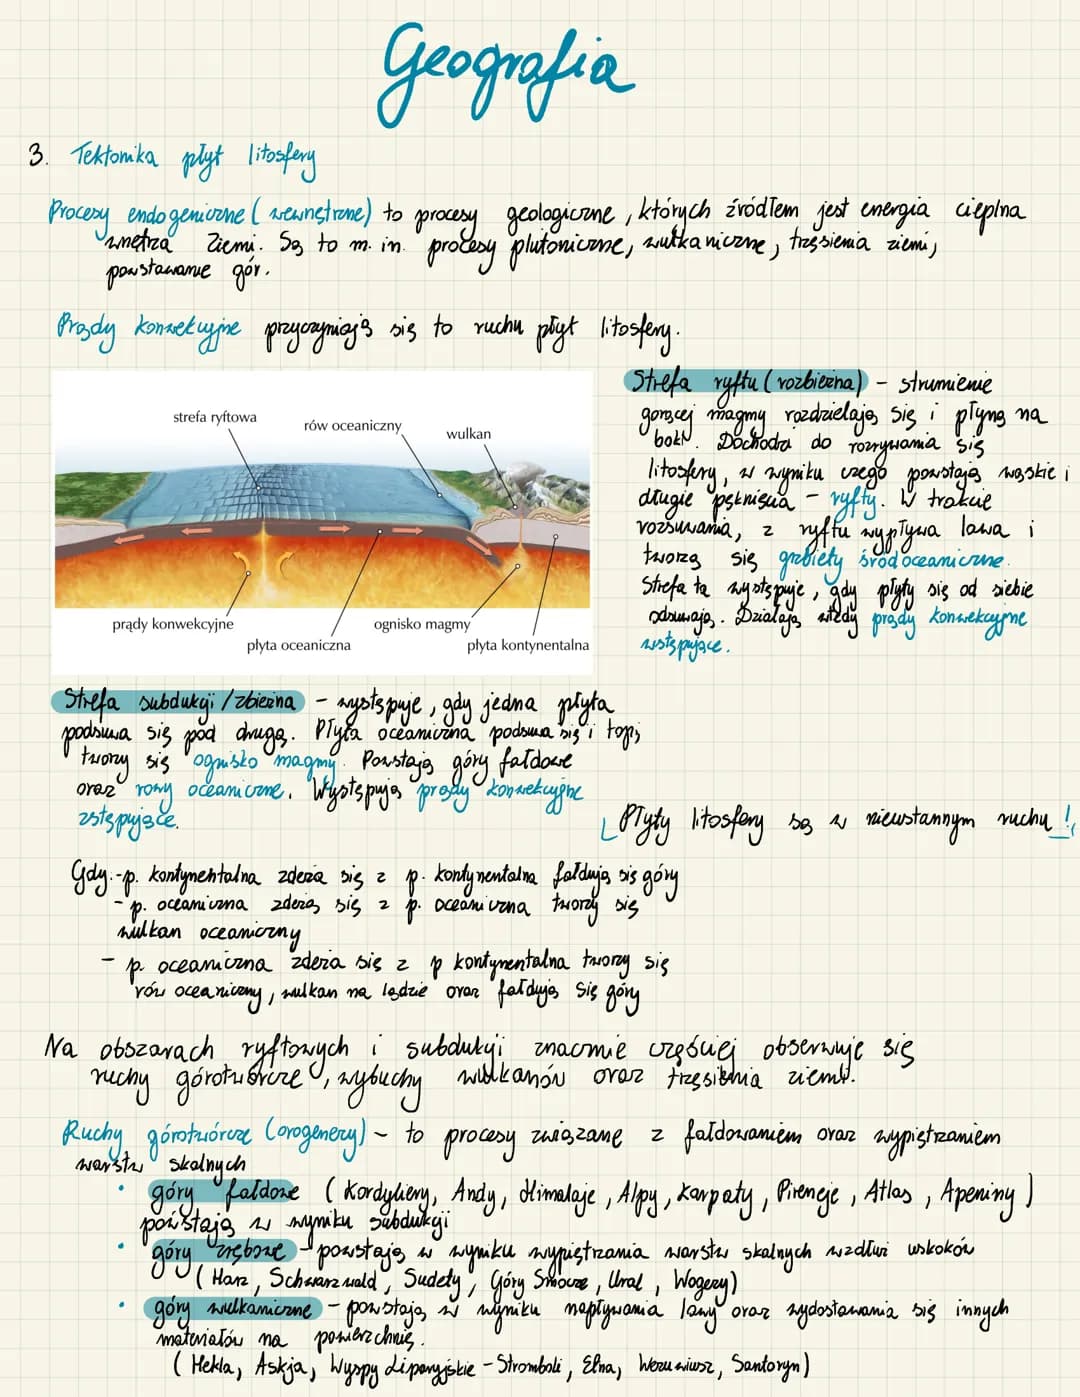 Geografia
3. Tektonika płyt litosfery
Procesy endogeniczne (wewnętrzne) to procesy geologiczne, których źródłem jest energia cieplna
wnętrza Ziemi. Są to m.in. procesy plutoniczne, wulkaniczne, trzęsienia ziemi,
powstawanie gór.
Prądy konwekcyjne przyczyniają się to ruchu płyt litosfery.
strefa ryftowa
rów oceaniczny
wulkan
prądy konwekcyjne
płyta oceaniczna
ognisko magmy
płyta kontynentalna
Strefa ryftu (rozbieżna) - strumienie
gorącej magmy rozdzielają się i płyną na
boki. Dochodzi do rozrywania się
litosfery, w wyniku czego powstają wąskie i
długie pęknięcia - ryfty. W trakcie
rozsuwania, z ryftu wypływa lawa i
tworzą się grzbiety śródoceaniczne.
Strefa ta występuje, gdy płyty się od siebie
odsuwają. Działają wtedy prądy konwekcyjne
wstępujące.
Strefa subdukcji/zbieżna - występuje, gdy jedna płyta
podsuwa się pod drugą. Płyta oceaniczna podsuwa się i topi,
tworzy się ognisko magmy. Powstają góry fałdowe
oraz rowy oceaniczne. Występują prądy konwekcyjne
zstępujące.
Płyty litosfery są w nieustannym ruchu!
Gdy: - p. kontynentalna zderza się z p. kontynentalna fałdują się góry
- p. oceaniczna zderzą się z p. oceaniczna tworzy się
wulkan oceaniczny
- p oceaniczna zderza się z p kontynentalna tworzy się
rów oceaniczny, wulkan na lądzie oraz fałdują się góry
Na obszarach ryftowych i subdukcji znacznie częściej obserwuje się
ruchy górotwórcze, wybuchy wulkanów oraz trzęsienia ziemi.
Ruchy górotwórcze (orogenezy) - to procesy związane z fałdowaniem oraz wypiętrzaniem
warstw skalnych
• góry fałdowe (Kordyliery, Andy, Himalaje, Alpy, Karpaty, Pireneje, Atlas, Apeniny)
powstają w wyniku subdukcji
• góry zrębowe - powstają w wyniku wypiętrzania warstw skalnych wzdłuż uskoków
(Harz, Schwarzwald, Sudety, Góry Smocze, Ural, Wogezy)
• góry wulkaniczne - powstają w wyniku napływania lawy oraz wydostawania się innych
materiałów na powierzchnię.
(Hekla, Askja, Wyspy Liparyjskie - Stromboli, Etna, Wezuwiusz, Santoryn)